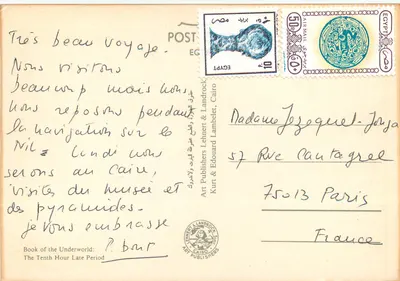 Très beau voyage.
Nous visitons
beaucoup mais nous
nous reposons pendant
la navigation sur le
Nil. Lundi nous
serons au Caire,
visites du musée et
des pyramides.
je vous embrasse
Book of the Underworld:
The Tenth Hour Late Period
POST
EG
Art Publishers Lehnert & Landrock
Kurt & Edouard Lambelet, Cairo
EGYPT
10
EGYPT
AIR MAIL
50
Madame Jezequel-
57 Rue Cantagrel
75013 Paris
France
ART PUBLISHERS